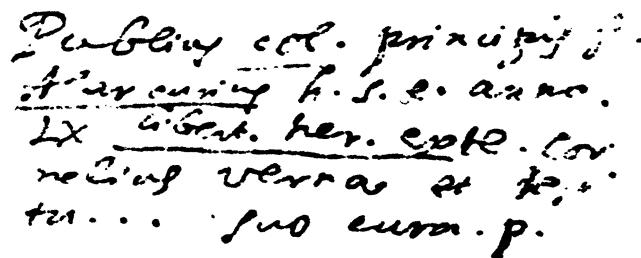 Publius col. principis f.
Marcurius h. s. e. anno.
LX libert. her. ex te. Cor
nelius verna et
tu... suo cura. p.